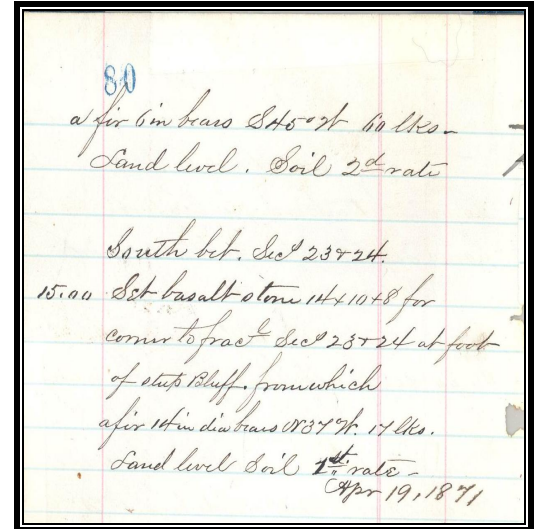 80
a fir 6 in bears S45°W 60 lks-
Land level. Soil 2d rate
South bet. Secs 23 & 24.
15.00 Set basalt stone 14x10x8 for
corner to fracl Secs 23 & 24 at foot
of steep Bluff. from which
a fir 14 in dia bears N37W. 17 lks.
Land level Soil 1st. rate-
Apr 19, 1871